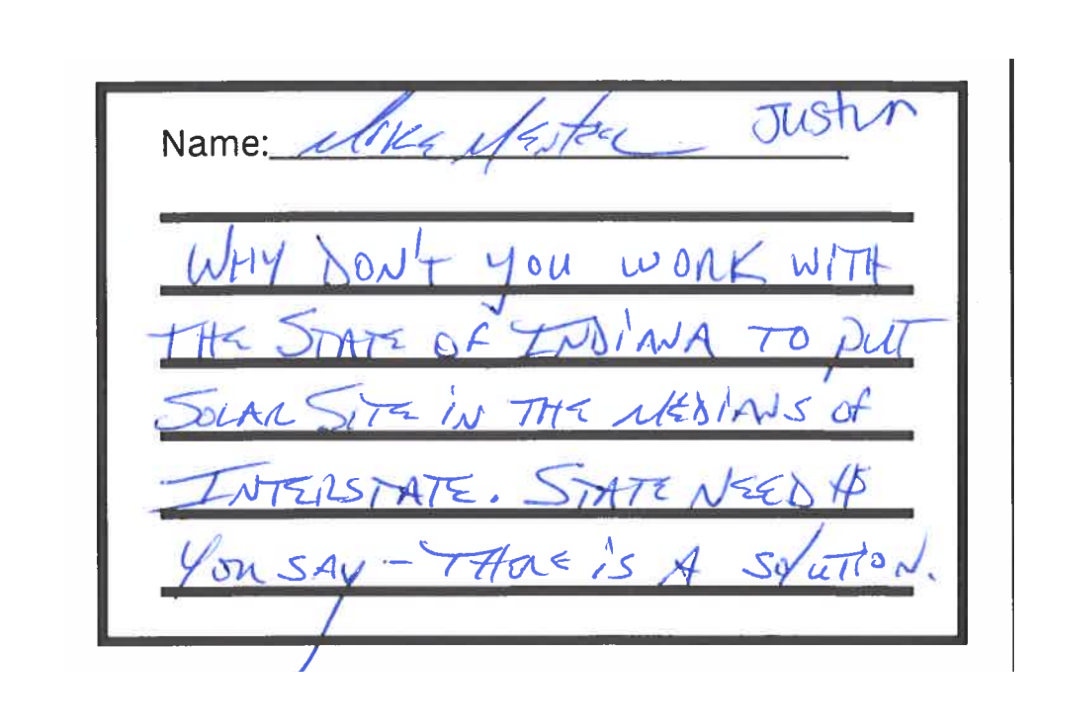 Name: Mike Justin
WHY DON'T YOU WORK WITH
THE STATE OF INDIANA TO PUT
SOLAR SITE IN THE MEDIANS OF
INTERSTATE. STATE NEED $
YOU SAY - THERE IS A SOLUTION.